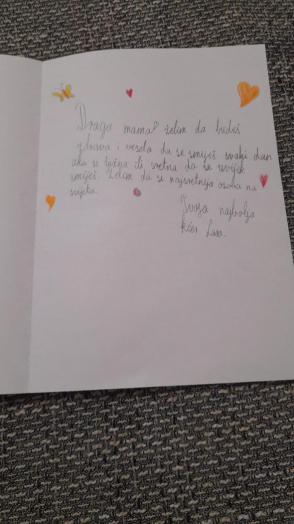 Draga mama želim da budeš
zdrava i vesela da se smiješ svaki dan
ako si tužna ili sretna da se uvijek
smiješ. Želim da si najsretnija osoba na
svijetu.
Tvoja najbolja
kćer Lara.